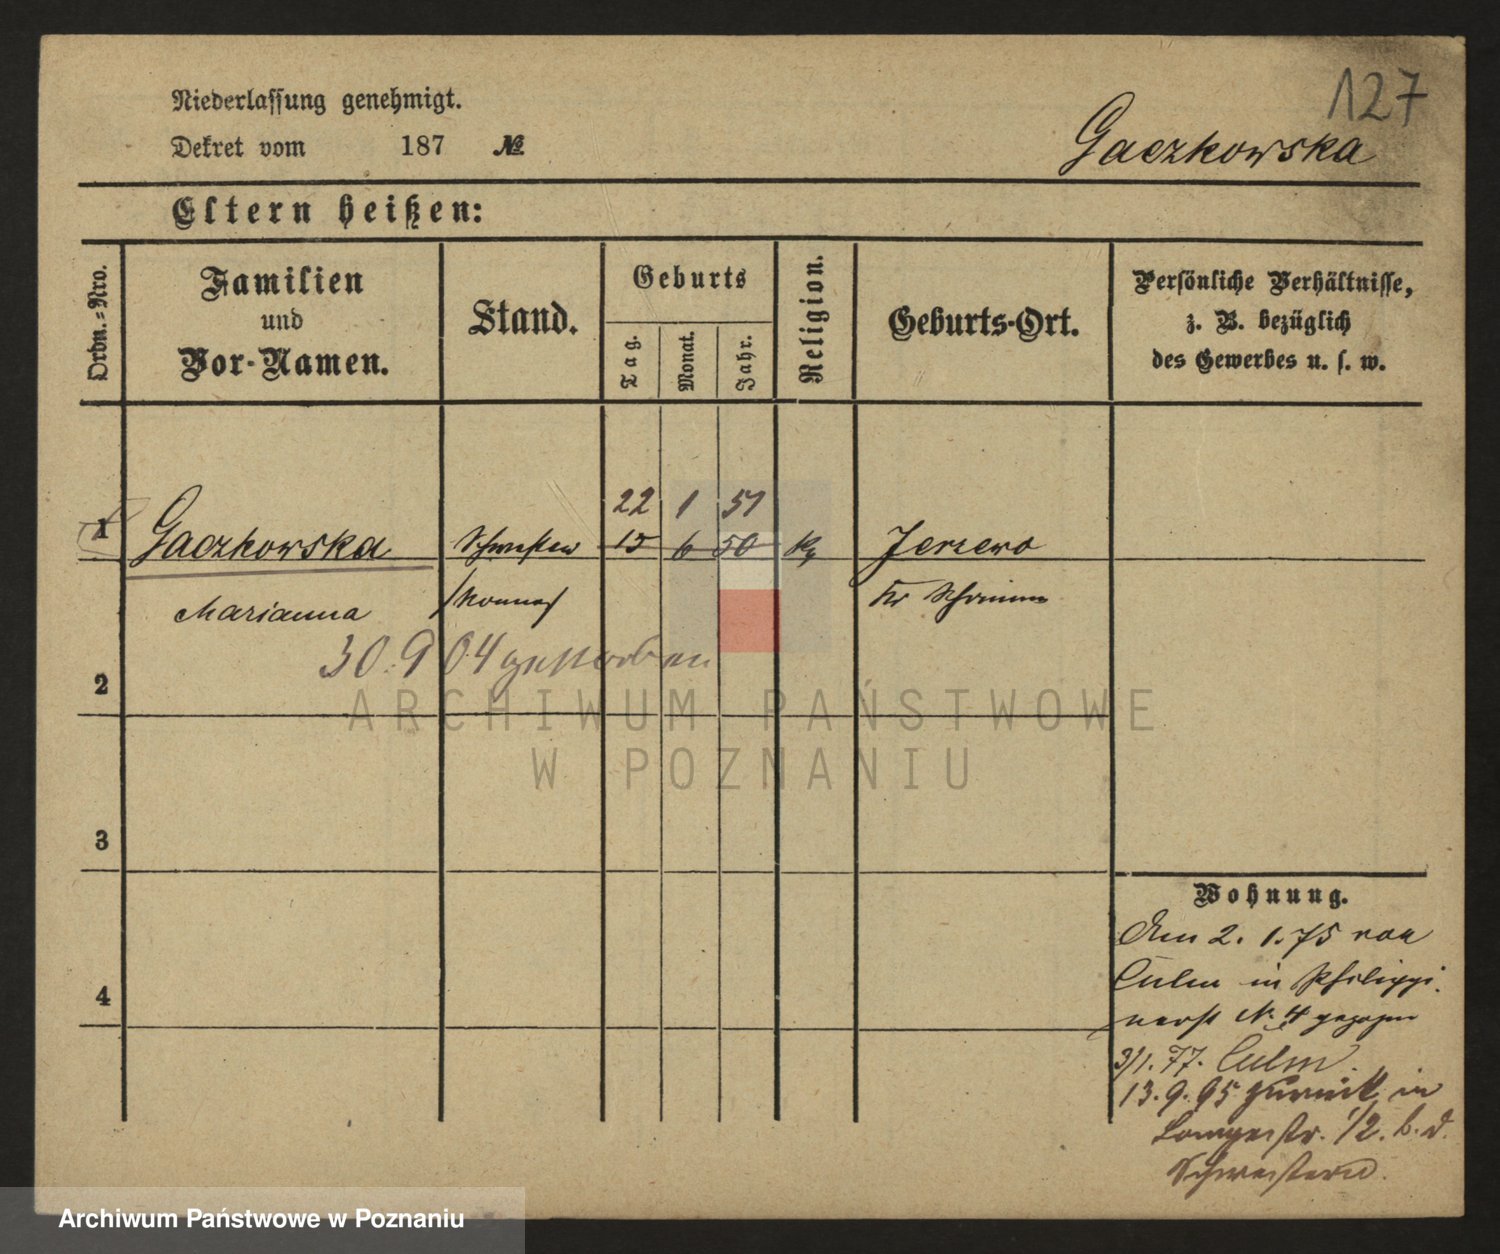 127
Niederlassung genehmigt.
Dekret vom 187 №
Gaczkowska
Eltern heißen:
Ordn.-Nro.
Familien
und
Vor-Namen.
Stand.
Geburts
Tag.
Monat.
Jahr.
Religion.
Geburts-Ort.
Persönliche Verhältnisse,
z. B. bezüglich
des Gewerbes u. s. w.
22 1 51
1 Gaczkowska Schwester 15 6 50 k Jerzewo
Marianna /Nonne/ Kr Schrimm
30.9 04 gestorben
2
ARCHIWUM PAŃSTWOWE
W POZNANIU
3
Wohnung.
Am 2. 1. 75 von
Culm in Philippi.
nerst № 4 gezogen
4
3/1. 77. Culm.
13. 9. 95 zurück in
Langestr. 1/2. b. d.
Schwestern.
Archiwum Państwowe w Poznaniu